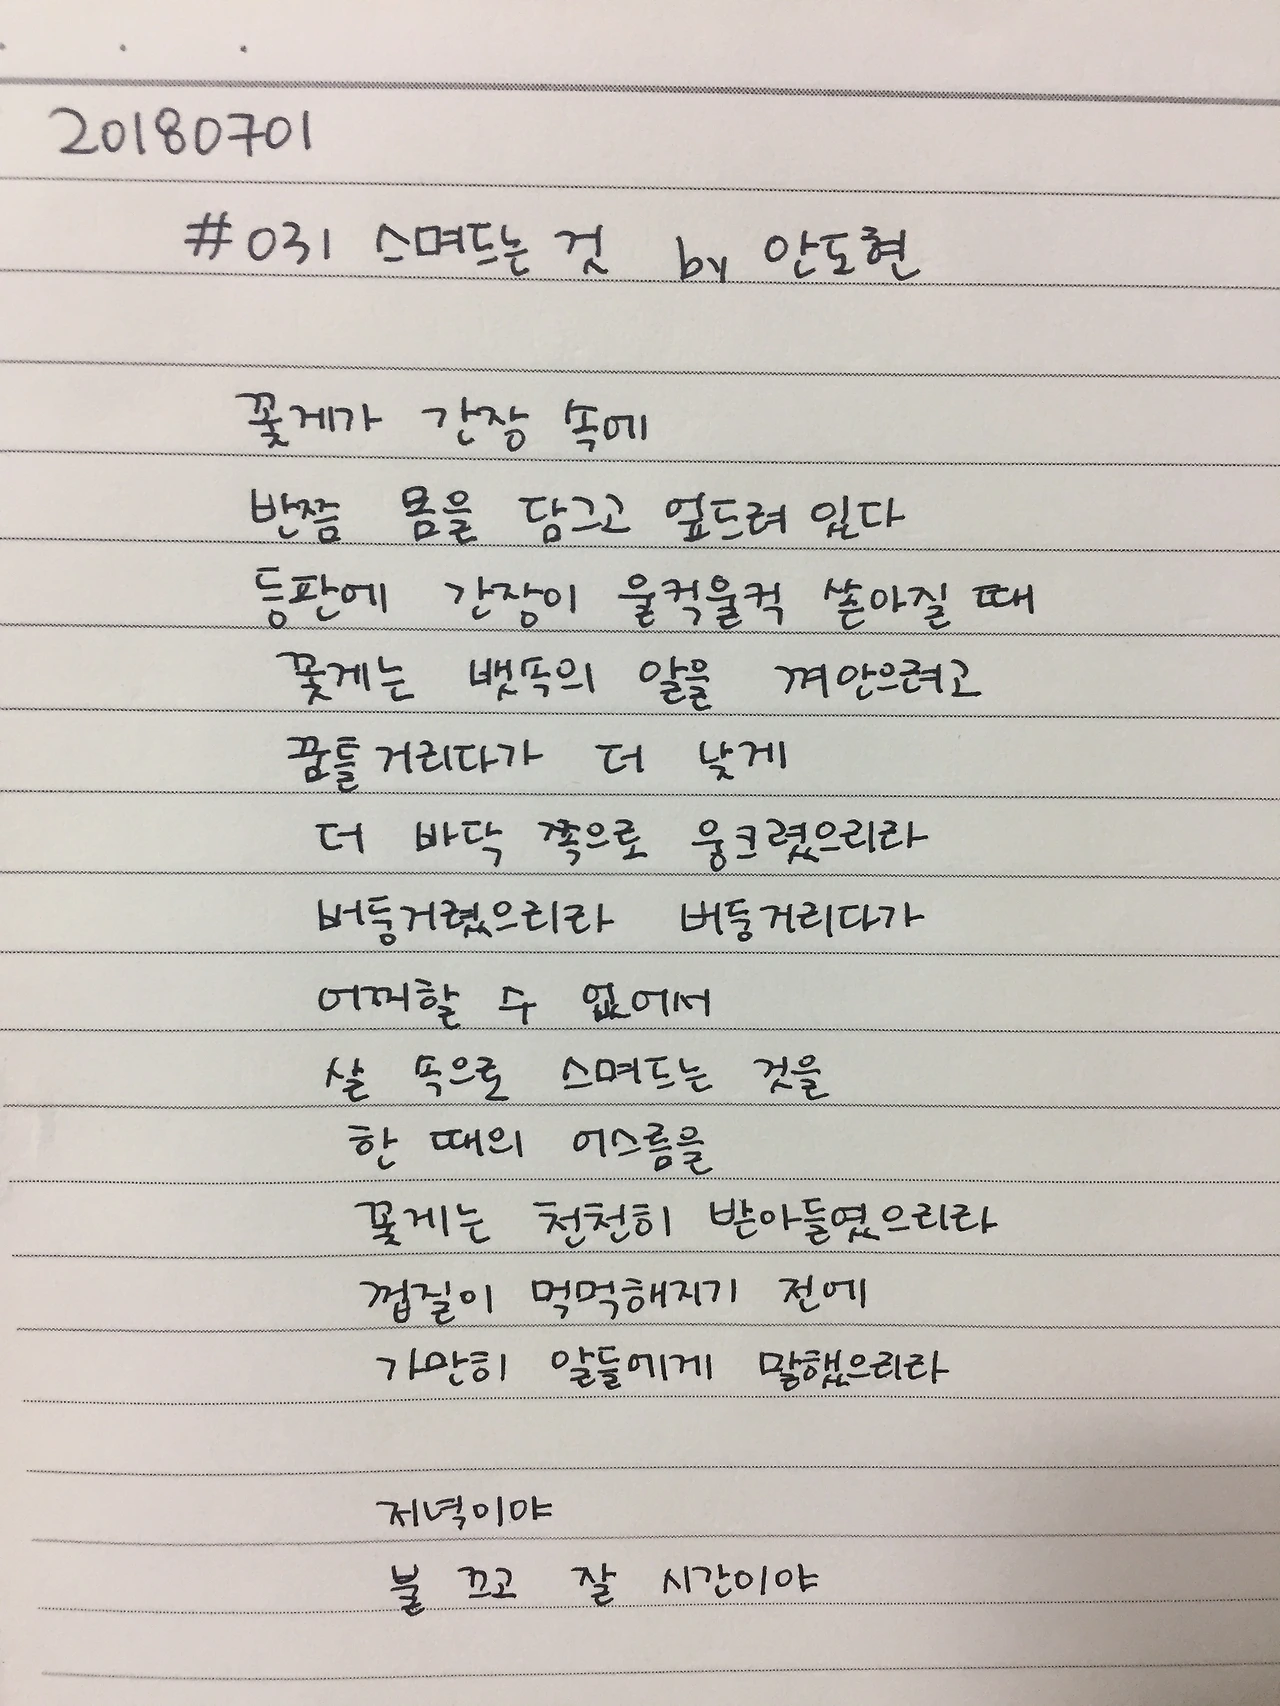 20180701
#031 스며드는 것 by 안도현
꽃게가 간장 속에
반쯤 몸을 담그고 엎드려 있다
등판에 간장이 울컥울컥 쏟아질 때
꽃게는 뱃속의 알을 껴안으려고
꿈틀거리다가 더 낮게
더 바닥 쪽으로 웅크렸으리라
버둥거렸으리라 버둥거리다가
어찌할 수 없어서
살 속으로 스며드는 것을
한 때의 어스름을
꽃게는 천천히 받아들였으리라
껍질이 먹먹해지기 전에
가만히 알들에게 말했으리라
저녁이야
불 끄고 잘 시간이야